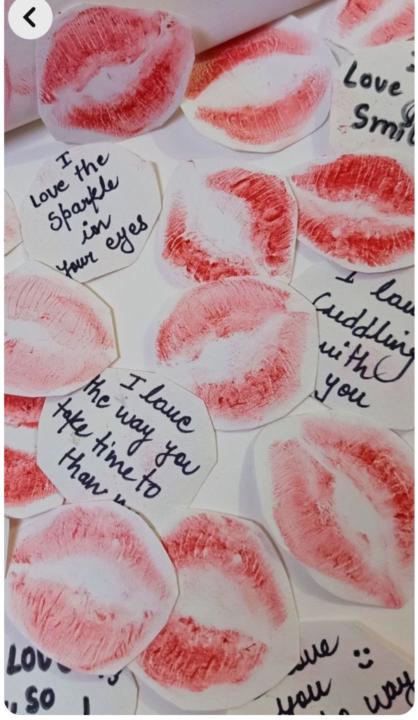 Love
Smi
I
love the
Sparkle
in
your eyes
I
Cuddling
with
you
I love
the way you
take time to
than
LOV
so
you
way